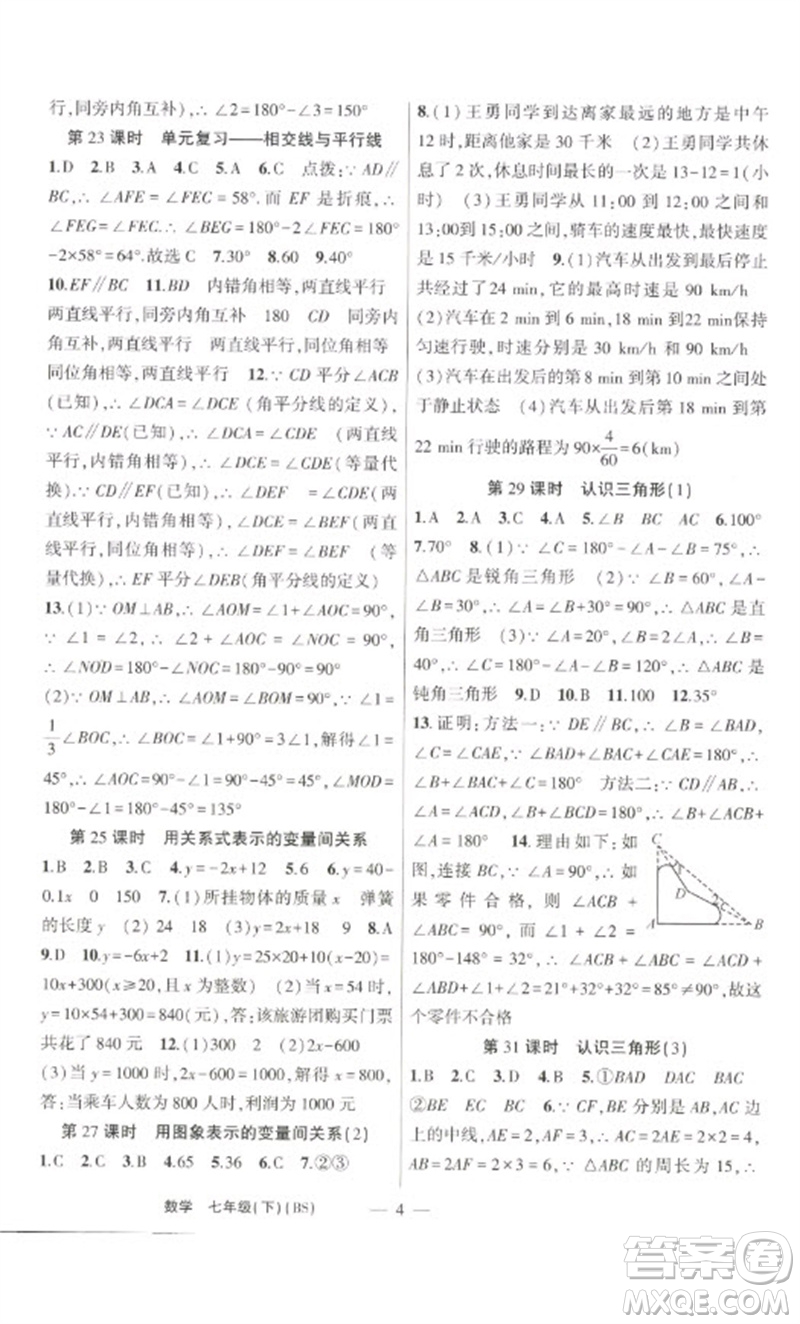 行,同旁内角互补),∴ ∠2=180°-∠3=150°
第 23 课时　单元复习——相交线与平行线
1.D　2.B　3.A　4.C　5.A　6.C　点拨:∵ AD∥
BC,∴ ∠AFE=∠FEC=58°. 而 EF 是折痕,∴
∠FEG=∠FEC. ∴ ∠BEG=180°-2∠FEC=180°
-2×58°=64°. 故选 C　7.30°　8.60　9.40°
10.EF∥BC　11.BD　内错角相等,两直线平行
两直线平行,同旁内角互补　180　CD　同旁内
角互补,两直线平行　两直线平行,同位角相等
同位角相等,两直线平行　12.∵ CD 平分∠ACB
(已知),∴ ∠DCA=∠DCE (角平分线的定义),
∵ AC∥DE(已知),∴ ∠DCA=∠CDE (两直线
平行,内错角相等),∴ ∠DCE=∠CDE (等量代
换).∵ CD∥EF(已知),∴ ∠DEF =∠CDE(两直
线平行,内错角相等),∠DCE=∠BEF(两直线
平行,同位角相等),∴ ∠DEF = ∠BEF (等
量代换),∴ EF 平分∠DEB(角平分线的定义)
13.(1)∵ OM⊥AB,∴ ∠AOM=∠1+∠AOC=90°,
∵ ∠1 = ∠2,∴ ∠2 + ∠AOC = 90°,∴
∠NOD=180°-∠NOC=180°-90°=90°
(2)∵ OM⊥AB,∴ ∠AOM=∠BOM=90°,∵ ∠1=
1/3∠BOC,∴ ∠BOC=∠1+90°=3∠1,解得∠1=
45°,∴ ∠AOC=90°-∠1=90°-45°=45°,∠MOD=
180°-∠1=180°-45°=135°
第 25 课时　用关系式表示的变量间关系
1.B　2.B　3.C　4.y=-2x+12　5.6　6.y=40-
0.1x　0　150　7.(1)所挂物体的质量 x　弹簧
的长度 y　(2) 24　18　(3)y=2x+18　9　8.A
9.D　10.y=-6x+2　11.(1)y=25×20+10(x-20)=
10x+300(x≥20,且 x 为整数)　(2)当 x=54 时,
y=10×54+300=840(元),答:该旅游团购买门票
共花了 840 元　12.(1)300　2　(2)2x-600
(3)当 x=800 时,y=2x-600=2×800-600=1000,
答:当乘车人数为 800 人时,利润为 1000 元
第 27 课时　用图象表示的变量间关系(2)
1.C　2.C　3.B　4.65　5.36　6.C　7.②③
8.(1) 王勇同学到达离家最远的地方是中午
12 时,距离他家是 30 千米　(2)王勇同学共休
息了 2 次,休息时间最长的一次是 13-12=1(小
时)　(3) 王勇同学从 11:00 到 12:00 之间和
13:00 到 15:00 之间,骑车的速度最快,最快速度
是 15 千米/小时　9.(1)汽车从出发到最后停止
共经过了 24 min,它的最高时速是 90 km/h
(2)汽车在 2 min 到 6 min,18 min 到22 min保持
匀速行驶,时速分别是 30 km/h 和 90 km/h
(3)汽车在出发后的第 8 min 到第 10 min 之间处
于静止状态　(4)汽车从出发后第 18 min 到第
22 min 行驶的路程为 90×4/60=6(km)
第 29 课时　认识三角形(1)
1.A　2.A　3.C　4.A　5.∠B　BC　AC　6.100°
7.70°　8.(1)∵ ∠C=180°-∠A-∠B=75°,∴
△ABC 是锐角三角形　(2)∵ ∠C = 180°-∠A-
∠B=30°,∴ ∠A+∠B=90°,∴ △ABC是直
角三角形　(3)∵ ∠A=20°,∠C=180°-∠A-∠B=
40°,∴ ∠B=180°-∠A-∠C=120°,∴ △ABC 是
钝角三角形　9.D　10.D　11.60　12.35°
13.证明:方法一:∵ DE∥BC,∴ ∠B=∠BAD,
∠C=∠CAE=∠BAD+∠BAC+∠CAE=180°,∴ ∠B+
∠BAC+∠C=180°　方法二:∵ CD∥AB,∴ ∠A=
∠ACD,∠B+∠BCD=180°,∴ ∠B+∠ACB+
∠A=180°　14.理由如下:如
图,连接 BC,∵ ∠A=90°,如
果 零 件 合 格, ∴ ∠ABC +
∠ACB = 90°, 而 ∠1 + ∠2 =
180°-148° = 32°,∴ ∠ABC +
∠ACB=21°+32°+32°=85°≠90°,矛盾,故这
个零件不合格
C
D
A
B
第 31 课时　认识三角形(3)
1.B　2.C　3.D　4.B　5.①BAD　DAC　BAC
②BE　EC　BC　6.∵ CF,BE 分别是 AB,AC 边
上的中线,AE=2,AF=3,∴ AB=2AF=2×3=6,
AC=2AE=2×2=4,∵ △ABC 的周长为 15,∴
数学　七年级(下)(BS)　— 4 —
答案圈
MXQE.COM